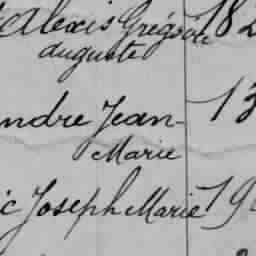 Alexis Grégoire 182
auguste
ndre Jean- 13
Marie
ic Joseph Marie 19